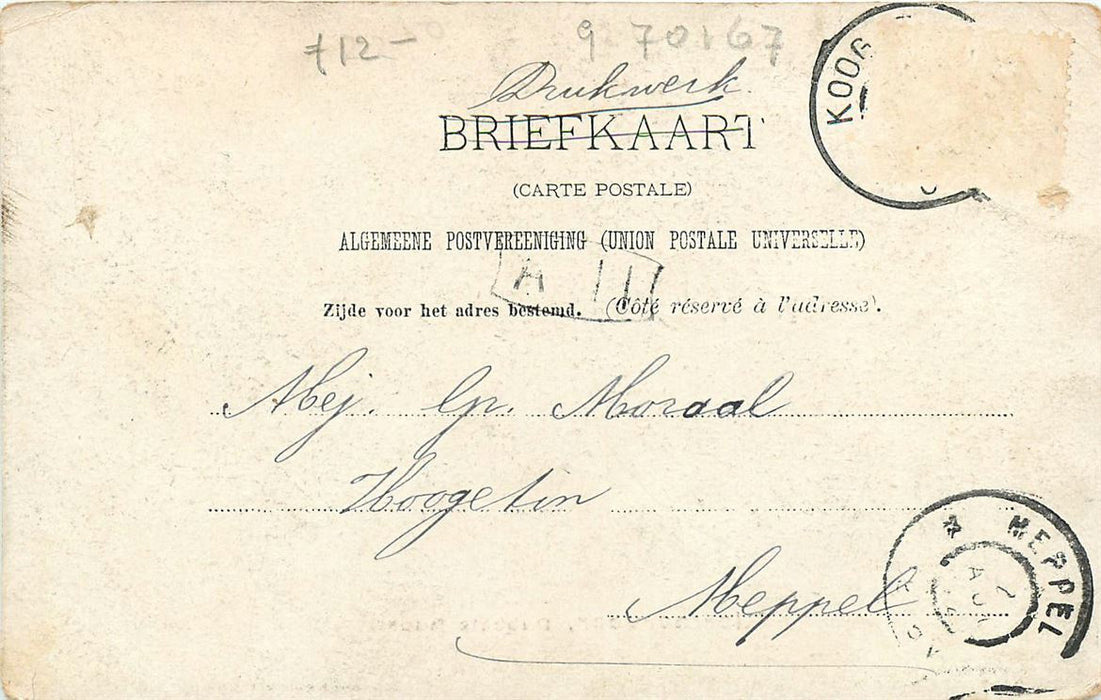 f12- 9 70167
Drukwerk.
BRIEFKAART
KOOG
(CARTE POSTALE)
ALGEMEENE POSTVEREENIGING (UNION POSTALE UNIVERSELLE)
A III
Zijde voor het adres bestemd. (Côté réservé à l'adresse).
Mej. Gr. Moraal
Hoogetin
Meppel
MEPPEL